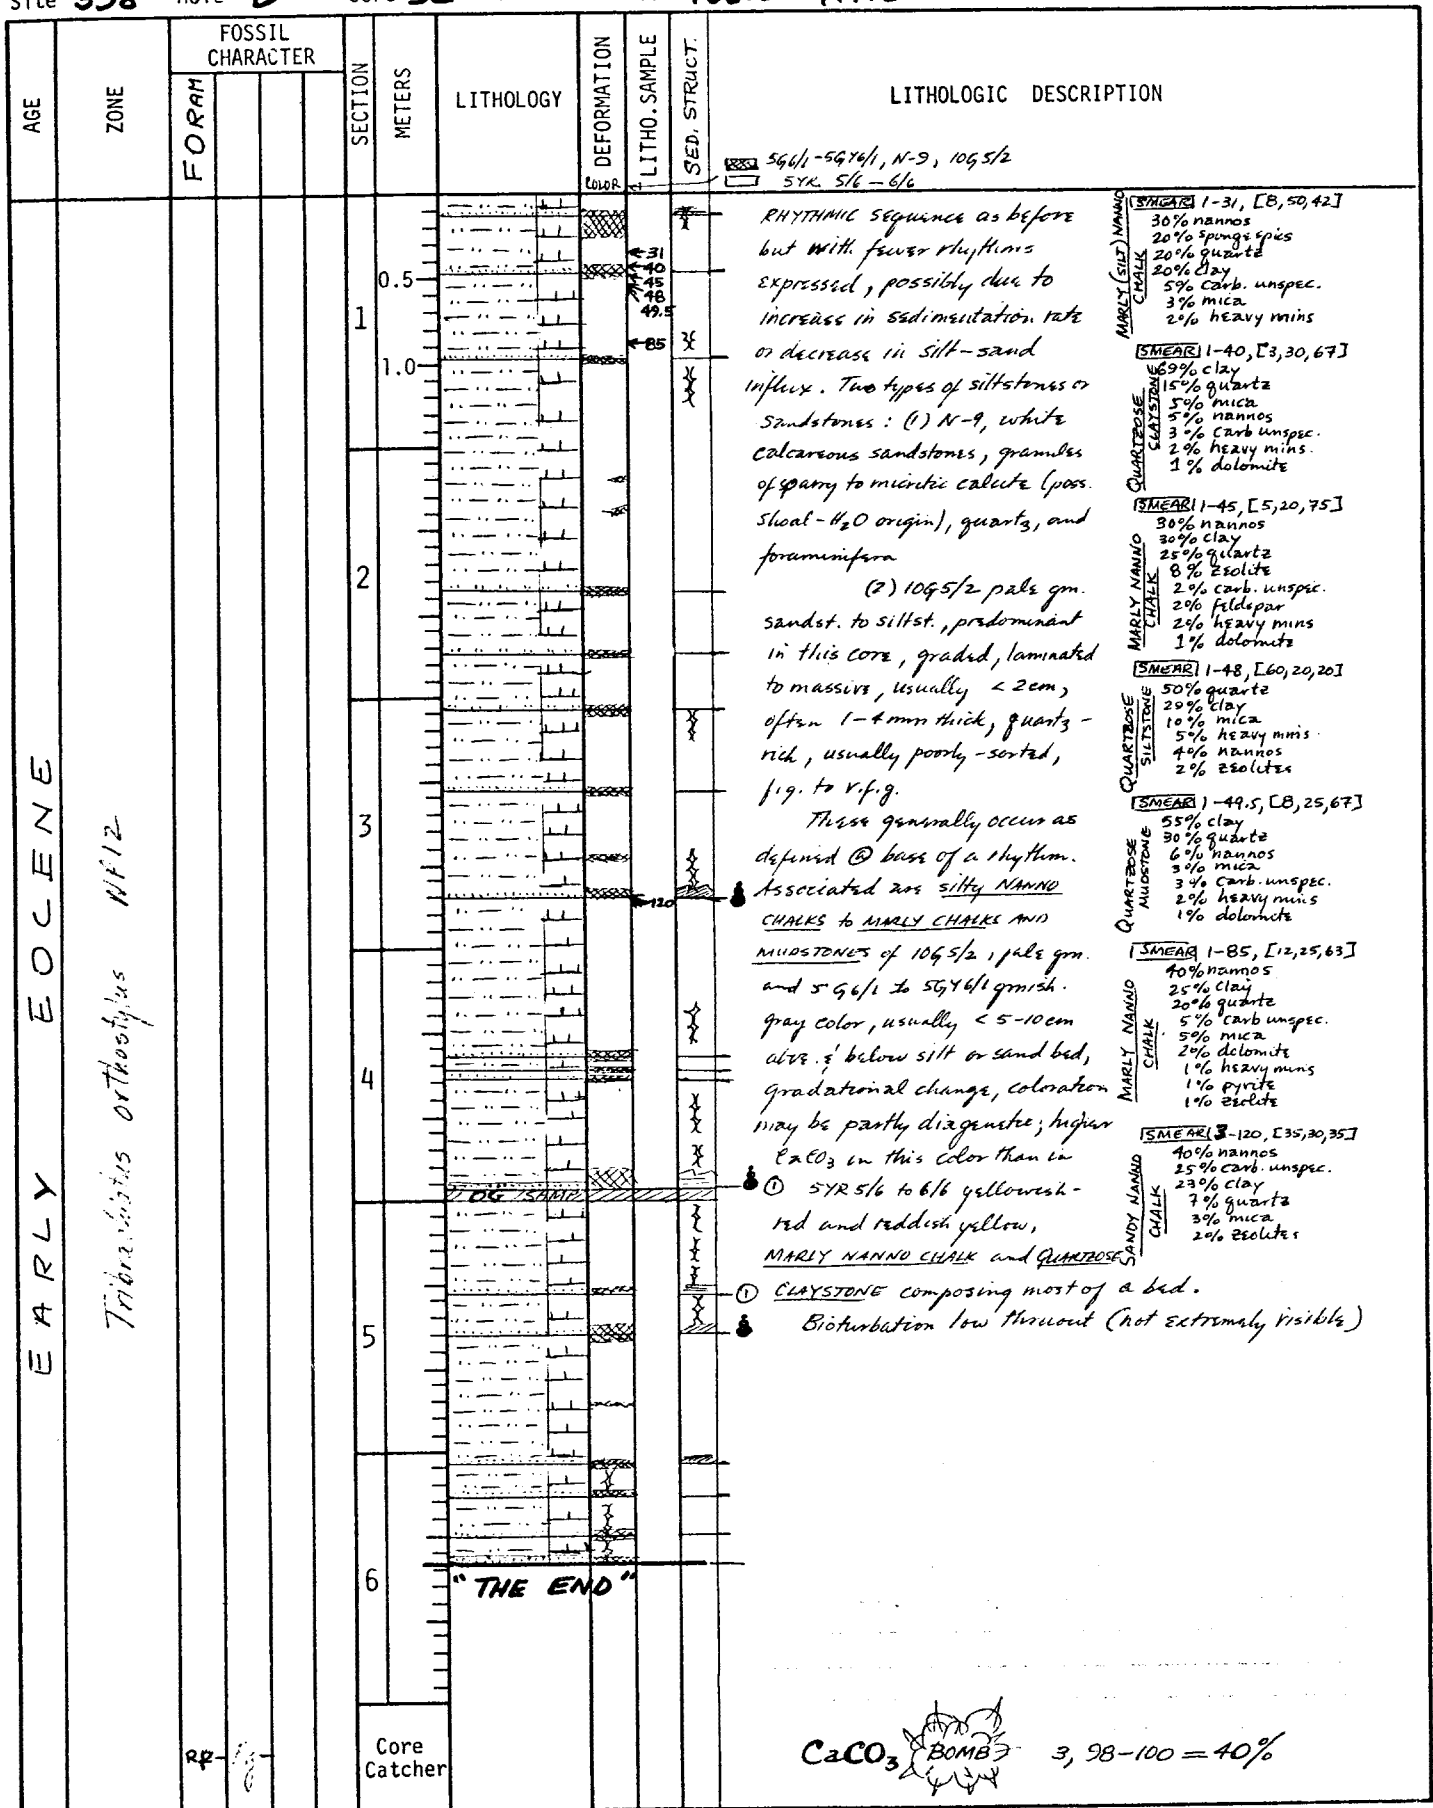 Site 398 Hole D Core 32
AGE
ZONE
FOSSIL
CHARACTER
FORAM
SECTION
METERS
LITHOLOGY
DEFORMATION
COLOR
LITHO. SAMPLE
SED. STRUCT.
LITHOLOGIC DESCRIPTION
5G6/1-5GY6/1, N-9, 10G5/2
5YR 5/6 - 6/6
EARLY EOCENE
orthostylus NF12
0.5
1.0
1
2
3
4
5
6
Core
Catcher
31
40
45
48
49.5
85
120
OG SAMP
"THE END"
RHYTHMIC sequence as before
but with fewer rhythms
expressed, possibly due to
increase in sedimentation rate
or decrease in silt-sand
influx. Two types of siltstones or
sandstones: (1) N-9, white
calcareous sandstones, granules
of sparry to micritic calcite (poss.
shoal-H2O origin), quartz, and
foraminifera
(2) 10G5/2 pale grn.
sandst. to siltst., predominant
in this core, graded, laminated
to massive, usually < 2cm,
often 1-4mm thick, quartz-
rich, usually poorly-sorted,
f.g. to v.f.g.
These generally occur as
defined @ base of a rhythm.
Associated are silty NANNO
CHALKS to MARLY CHALKS AND
MUDSTONES of 10G5/2, pale grn.
and 5G6/1 to 5GY6/1 grnish.
gray color, usually < 5-10cm
abve. & below silt or sand bed,
gradational change, coloration
may be partly diagenetic; higher
CaCO3 in this color than in
① 5YR 5/6 to 6/6 yellowish-
red and reddish yellow,
MARLY NANNO CHALK and QUARTZOSE
① CLAYSTONE composing most of a bed.
Bioturbation low thruout (not extremely visible)
MARLY (SILT) NANNO
CHALK
SMEAR 1-31, [8,50,42]
30% nannos
20% sponge spics
20% quartz
20% clay
5% carb. unspec.
3% mica
2% heavy mins
QUARTZOSE
CLAYSTONE
SMEAR 1-40, [3,30,67]
69% clay
15% quartz
5% mica
5% nannos
3% carb unspec.
2% heavy mins.
1% dolomite
MARLY NANNO
CHALK
SMEAR 1-45, [5,20,75]
30% nannos
30% clay
25% quartz
8% zeolite
2% carb. unspec.
2% feldspar
2% heavy mins
1% dolomite
QUARTZOSE
SILTSTONE
SMEAR 1-48, [60,20,20]
50% quartz
29% clay
10% mica
5% heavy mins.
4% nannos
2% zeolites
QUARTZOSE
MUDSTONE
SMEAR 1-49.5, [8,25,67]
55% clay
30% quartz
6% nannos
3% mica
3% carb. unspec.
2% heavy mins
1% dolomite
MARLY NANNO
CHALK
SMEAR 1-85, [12,25,63]
40% nannos
25% clay
20% quartz
5% carb unspec.
5% mica
2% dolomite
1% heavy mins
1% pyrite
1% zeolite
SANDY NANNO
CHALK
SMEAR 3-120, [35,30,35]
40% nannos
25% carb. unspec.
23% clay
7% quartz
3% mica
2% zeolites
CaCO3 BOMB 3, 98-100 = 40%